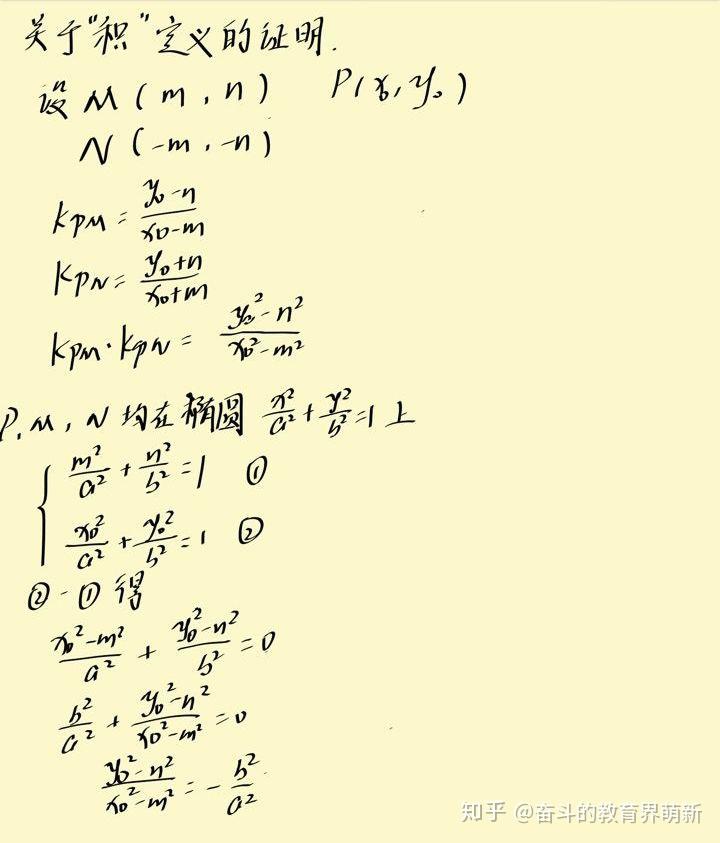 关于"积"定义的证明.
设 M(m,n) P(x₀,y₀)
N(-m,-n)
k_{PM} = \frac{y₀-n}{x₀-m}
k_{PN} = \frac{y₀+n}{x₀+m}
k_{PM}·k_{PN} = \frac{y₀²-n²}{x₀²-m²}
P,M,N均在椭圆 \frac{x²}{a²}+\frac{y²}{b²}=1上
\frac{m²}{a²}+\frac{n²}{b²}=1 ①
\frac{x₀²}{a²}+\frac{y₀²}{b²}=1 ②
②-①得
\frac{x₀²-m²}{a²}+\frac{y₀²-n²}{b²}=0
\frac{b²}{a²}+\frac{y₀²-n²}{x₀²-m²}=0
\frac{y₀²-n²}{x₀²-m²}=-\frac{b²}{a²}
知乎 @奋斗的教育界萌新